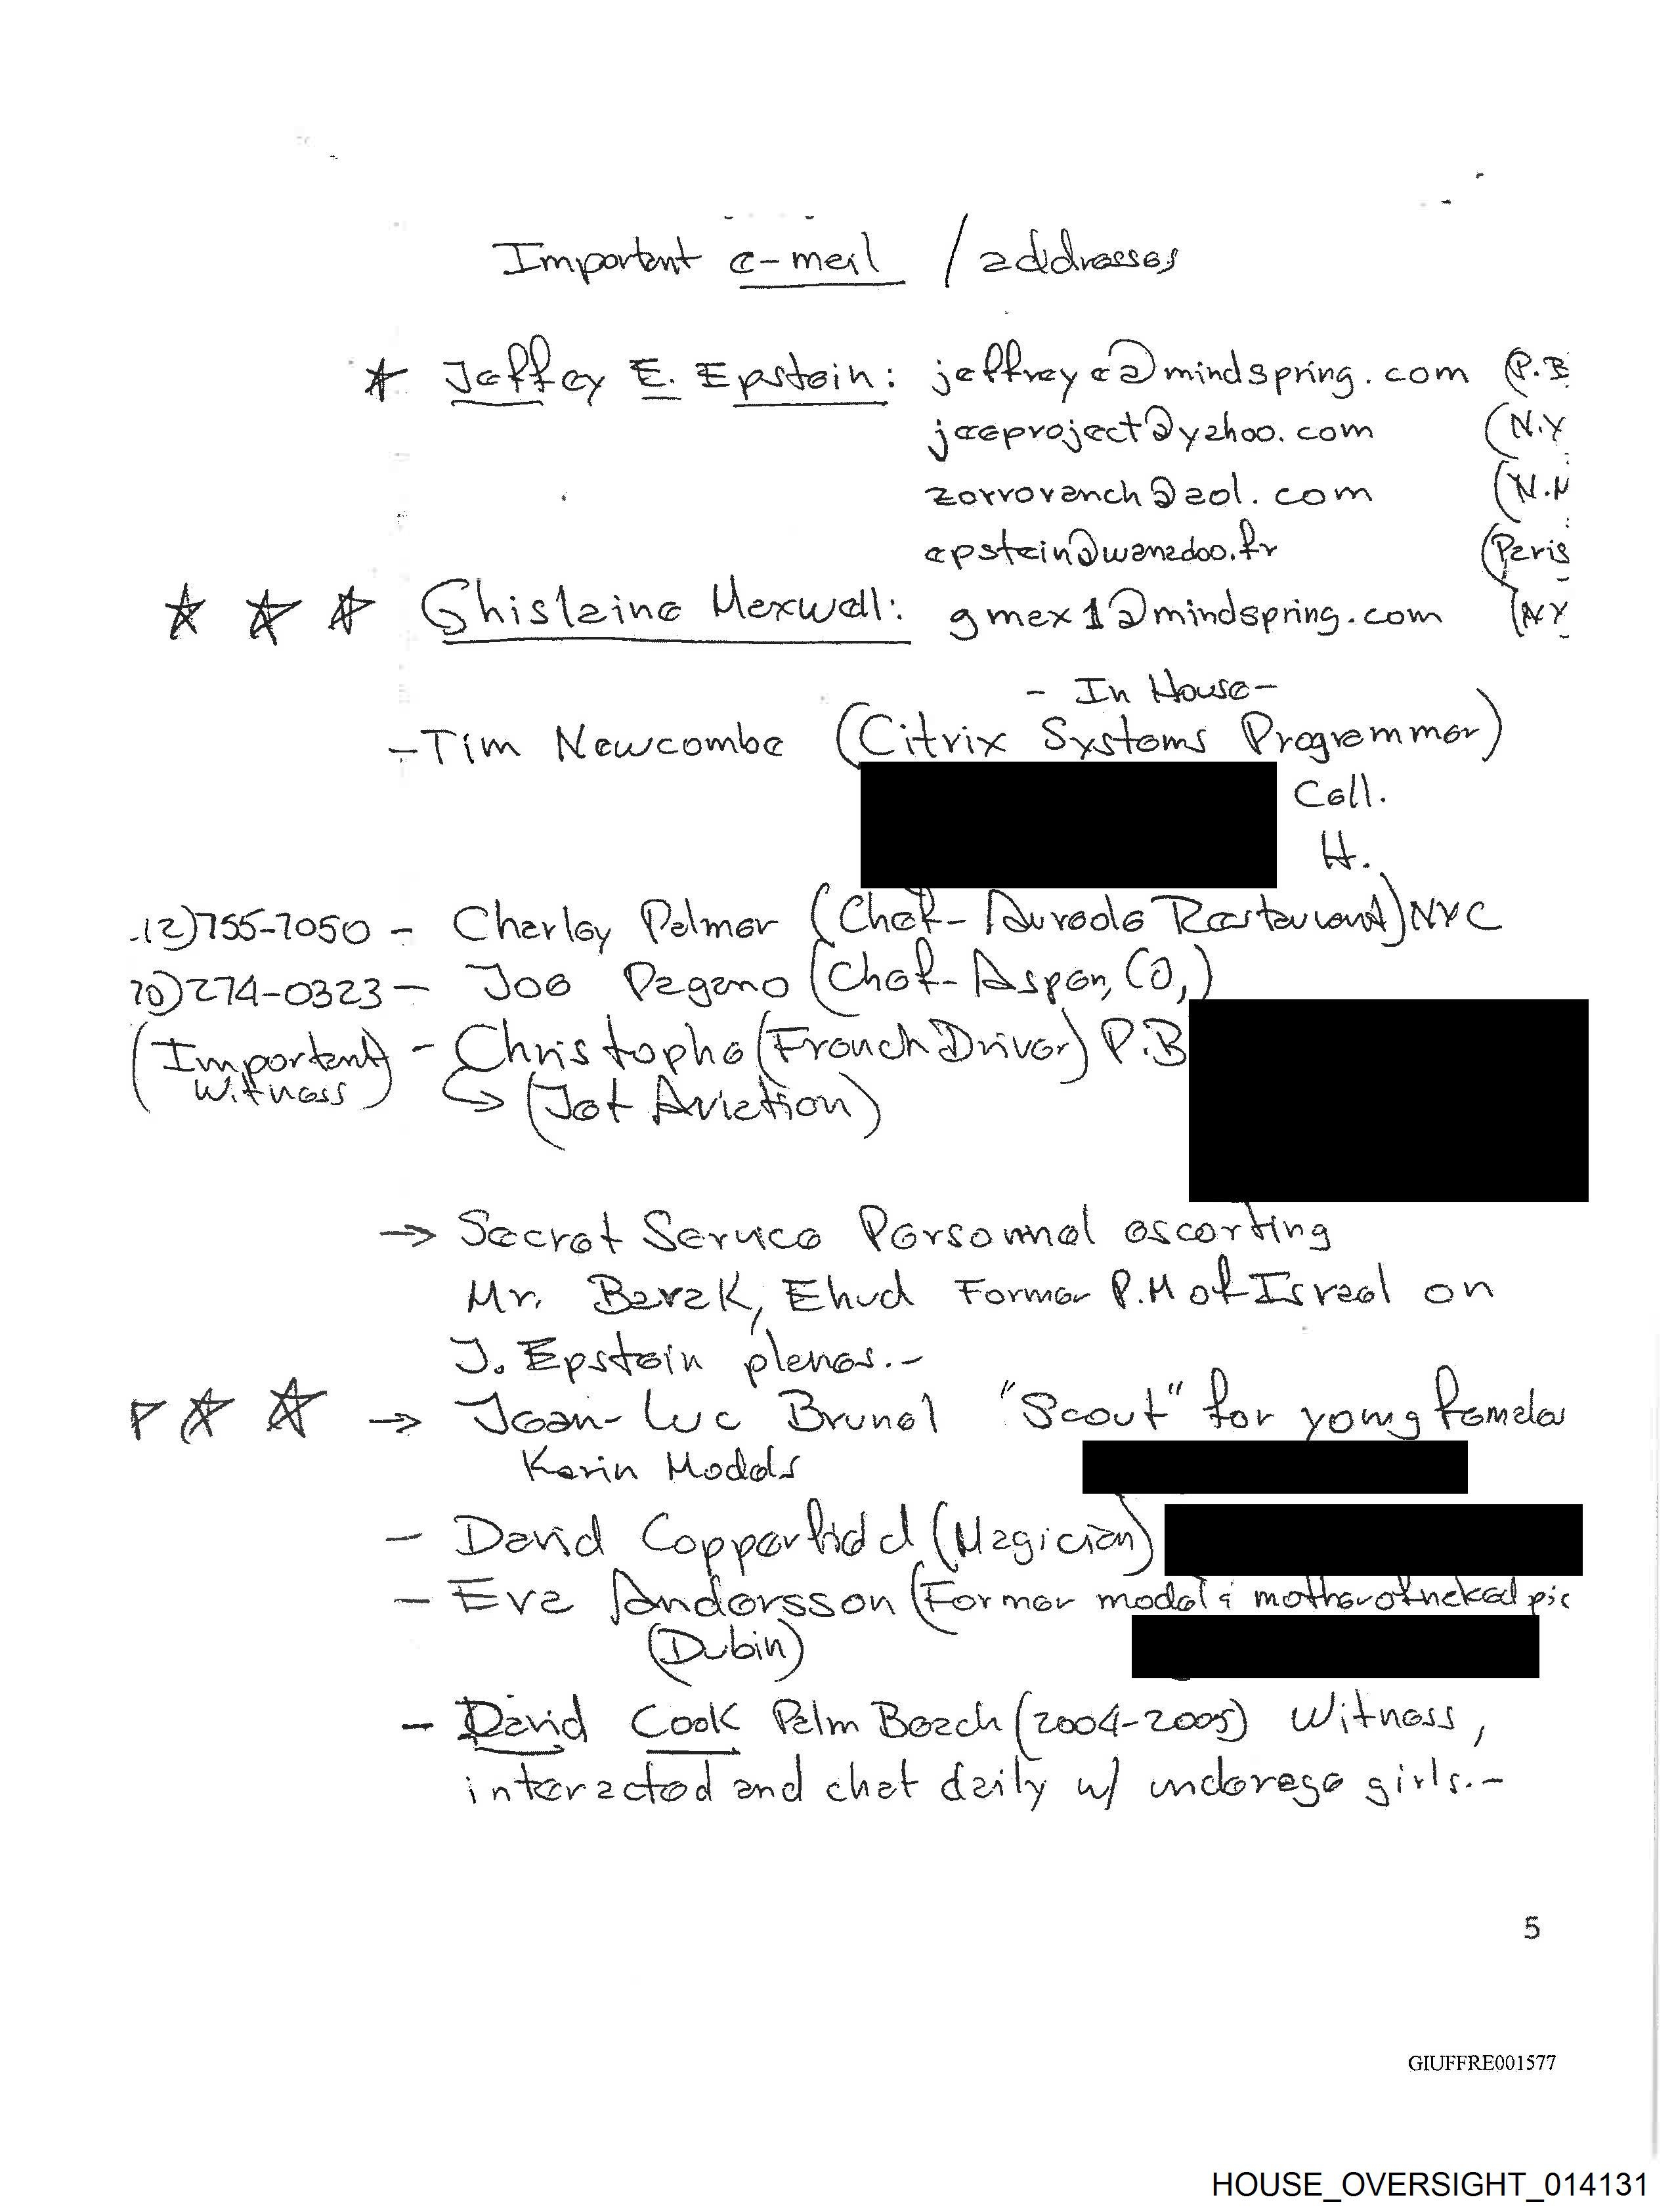 Important e-mail / addresses
Jeffrey E. Epstein: jeffreye@mindspring.com (P.B
jeeproject@yahoo.com (N.Y
zorroranch@aol.com (N.M
epstein@wanadoo.fr (Paris
Ghislaine Maxwell: gmax1@mindspring.com (NY
- In House -
- Tim Newcombe (Citrix Systems Programmer)
Cell.
H.
12)755-7050 - Charley Palmer (Chef - Aureole Restaurant) NYC
70)274-0323 - Joe Pagano (Chef - Aspen, CO,)
(Important Witness) - Christophe (French Driver) P.B
(Jet Aviation)
→ Secret Service Personnel escorting
Mr. Barak, Ehud Former P.M of Israel on
J. Epstein planes.-
→ Jean-Luc Brunel "Scout" for young females
Karin Models
- David Copperfield (Magician)
- Eva Andersson (Former model & mother of naked pic
(Dubin)
- David Cook Palm Beach (2004-2005) Witness,
interacted and chat daily w/ underage girls.-
5
GIUFFRE001577
HOUSE_OVERSIGHT_014131